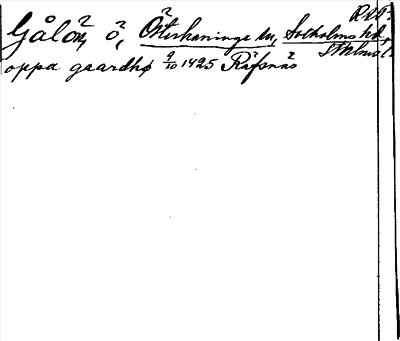 RAP:
Gålön, ö, Österhaninge sn, Sotholms hd,
Sthlms l.
oppa gaardhø 9/10 1425 Räfsnäs